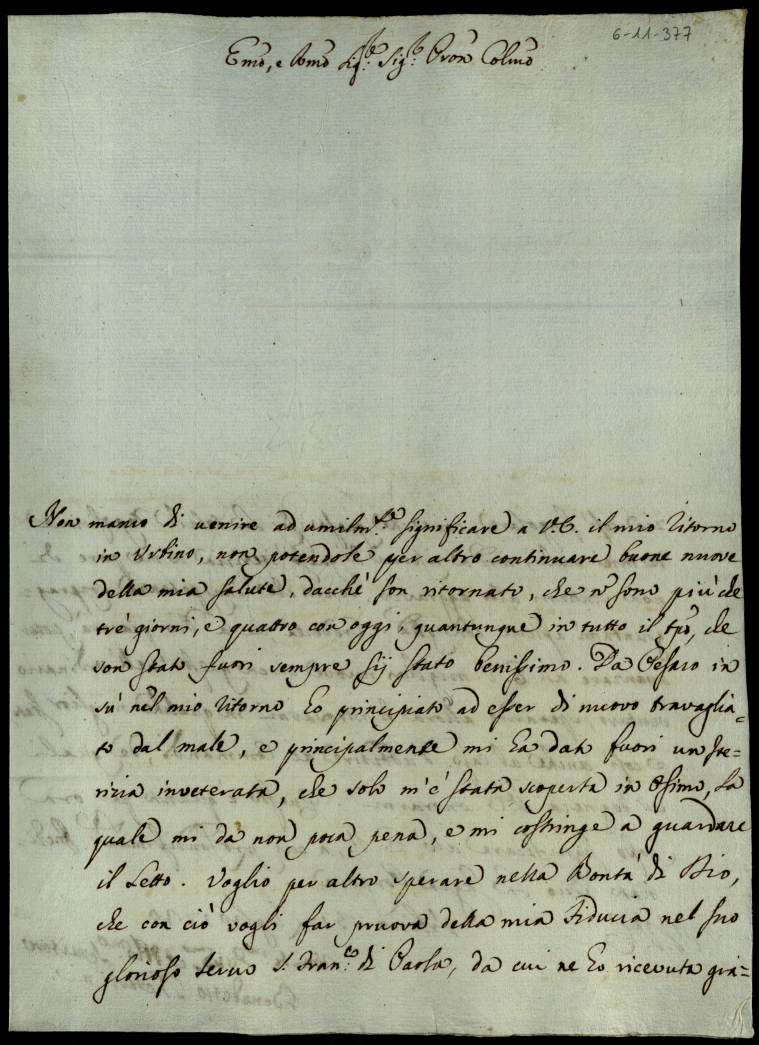 6-11-377
Emo, e Rmo Sig.re Sig.re Pron Colmo
Non manco di venire ad umilm.te significare a V.E. il mio ritorno
in Urbino, non potendole per altro continuare buone nuove
della mia salute, dacchè son ritornato, che nõ sono più che
trè giorni, e quattro con oggi, quantunque in tutto il tpõ, che
son stato fuori sempre sij stato benissimo. Da Pesaro in
sù nel mio ritorno ho principiato ad esser di nuovo travaglia=
to dal male, e principalmente mi ha dato fuori un Ite=
rizia inveterata, che solo m'è stata scoperta in Osimo, la
quale mi dà non poca pena, e mi costringe a guardare
il Letto. Voglio per altro sperare nella Bontà di Dio,
che con ciò vogli far pruova della mia Fiducia nel suo
glorioso Servo S. Fran.co di Paola, da cui ne ho ricevuta gra=